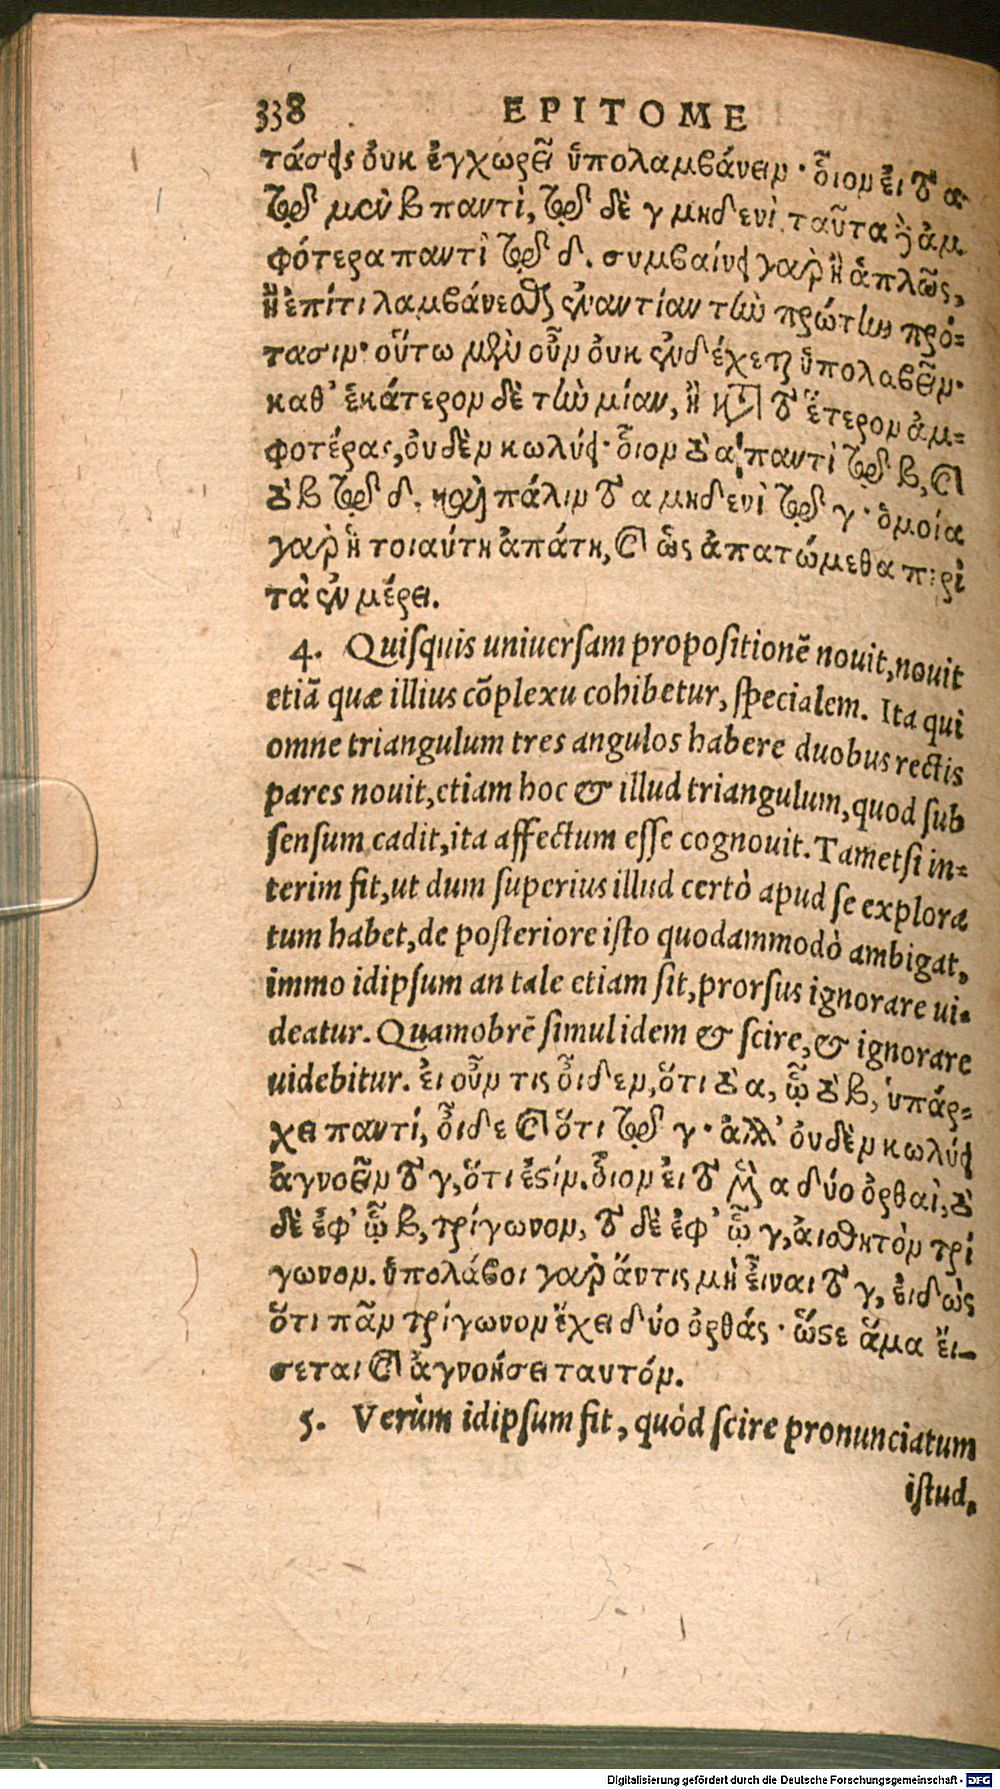 338 EPITOME
τάσεις οὐκ ἐγχωρεῖ ὑπολαμβάνειν· οἷον εἰ τὸ α
τῷ μὲν β παντὶ, τῷ δὲ γ μηδενὶ. ταῦτα δὲ ἀμ
φότερα παντὶ τῷ δ. συμβαίνει γὰρ ἢ ἁπλῶς,
ἢ ἐπί τι λαμβάνεσθαι ἐναντίαν τὴν πρώτην πρό-
τασιν· οὕτω μὲν οὖν οὐκ ἐνδέχεται ὑπολαβεῖν·
καθ' ἑκάτερον δὲ τὴν μίαν, ἢ κατὰ τὸ ἕτερον ἀμ-
φοτέρας, οὐδὲν κωλύει· οἷον τὸ α παντὶ τῷ β, καὶ
τὸ β τῷ δ. καὶ πάλιν τὸ α μηδενὶ τῷ γ· ὁμοία
γὰρ ἡ τοιαύτη ἀπάτη, καὶ ὡς ἀπατώμεθα περὶ
τὰ ἐν μέρει.
4. Quiſquis uniuerſam propoſitionẽ nouit, nouit
etiã quæ illius cõplexu cohibetur, ſpecialem. Ita qui
omne triangulum tres angulos habere duobus rectis
pares nouit, etiam hoc & illud triangulum, quod ſub
ſenſum cadit, ita affectum eſſe cognouit. Tametſi in-
terim fit, ut dum ſuperius illud certò apud ſe explora
tum habet, de poſteriore iſto quodammodò ambigat,
immo idipſum an tale etiam ſit, prorſus ignorare ui-
deatur. Quamobrẽ ſimul idem & ſcire, & ignorare
uidebitur. εἰ οὖν τις οἶδεν, ὅτι τὸ α, ᾧ τὸ β, ὑπάρ-
χει παντί, οἶδε καὶ ὅτι τῷ γ· ἀλλ' οὐδὲν κωλύει
ἀγνοεῖν τὸ γ, ὅτι ἐστίν. οἷον εἰ τὸ μὲν α δύο ὀρθαὶ, τὸ
δὲ ἐφ' ᾧ β, τρίγωνον, τὸ δὲ ἐφ' ᾧ γ, αἰσθητὸν τρί
γωνον. ὑπολάβοι γὰρ ἄν τις μὴ εἶναι τὸ γ, εἰδὼς
ὅτι πᾶν τρίγωνον ἔχει δύο ὀρθάς· ὥστε ἅμα εἴ-
σεται καὶ ἀγνοήσει ταυτόν.
5. Verùm idipſum fit, quòd ſcire pronunciatum
iſtud,
Digitalisierung gefördert durch die Deutsche Forschungsgemeinschaft - DFG